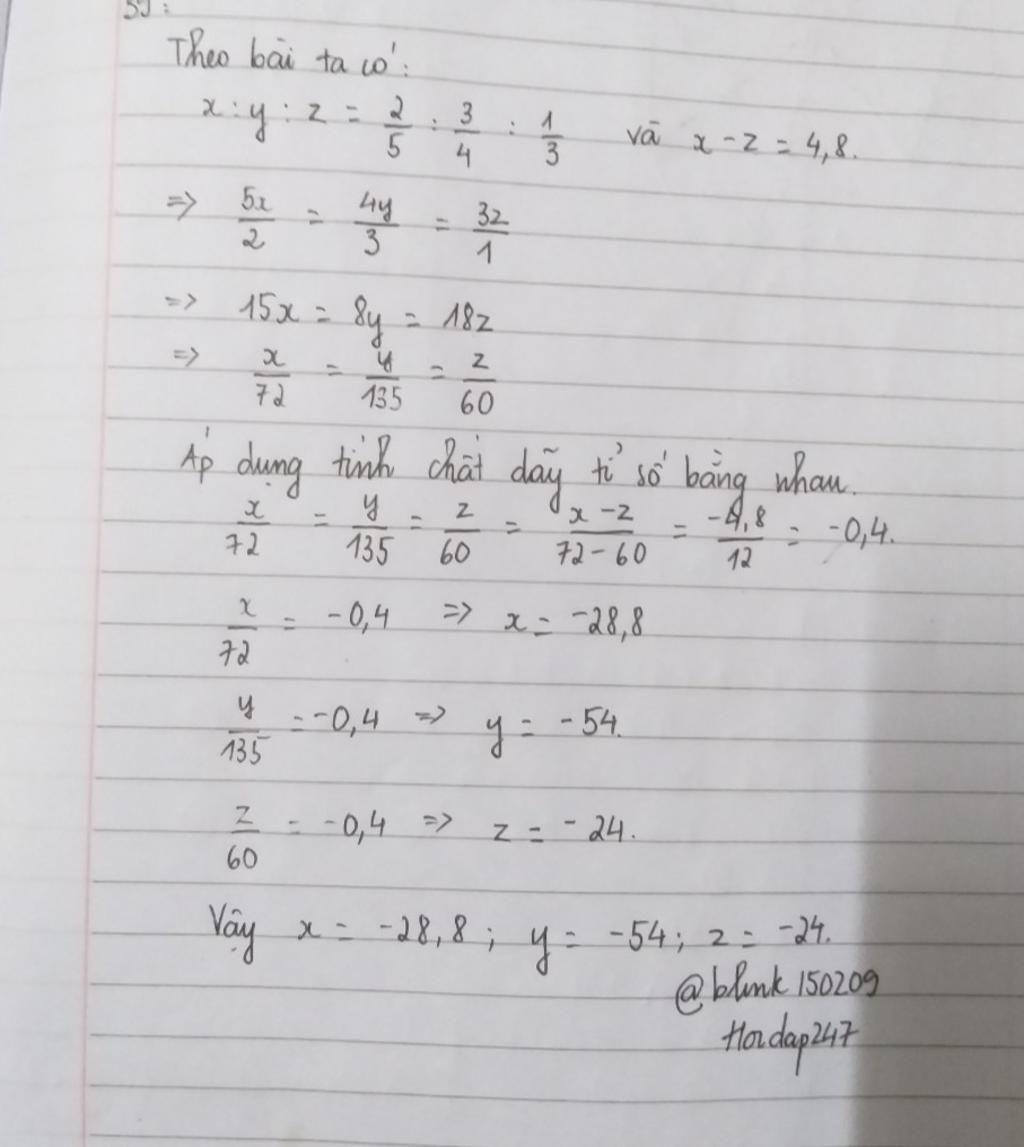 Theo bài ta có:
x : y : z = 2/5 : 3/4 : 1/3 và x - z = 4,8.
=> 5x/2 = 4y/3 = 3z/1
=> 15x = 8y = 18z
=> x/72 = y/135 = z/60
Áp dụng tính chất dãy tỉ số bằng nhau.
x/72 = y/135 = z/60 = x-z/72-60 = -4,8/12 = -0,4.
x/72 = -0,4 => x = -28,8
y/135 = -0,4 => y = -54.
z/60 = -0,4 => z = -24.
Vậy x = -28,8 ; y = -54 ; z = -24.
@blink150209
Hoidap247